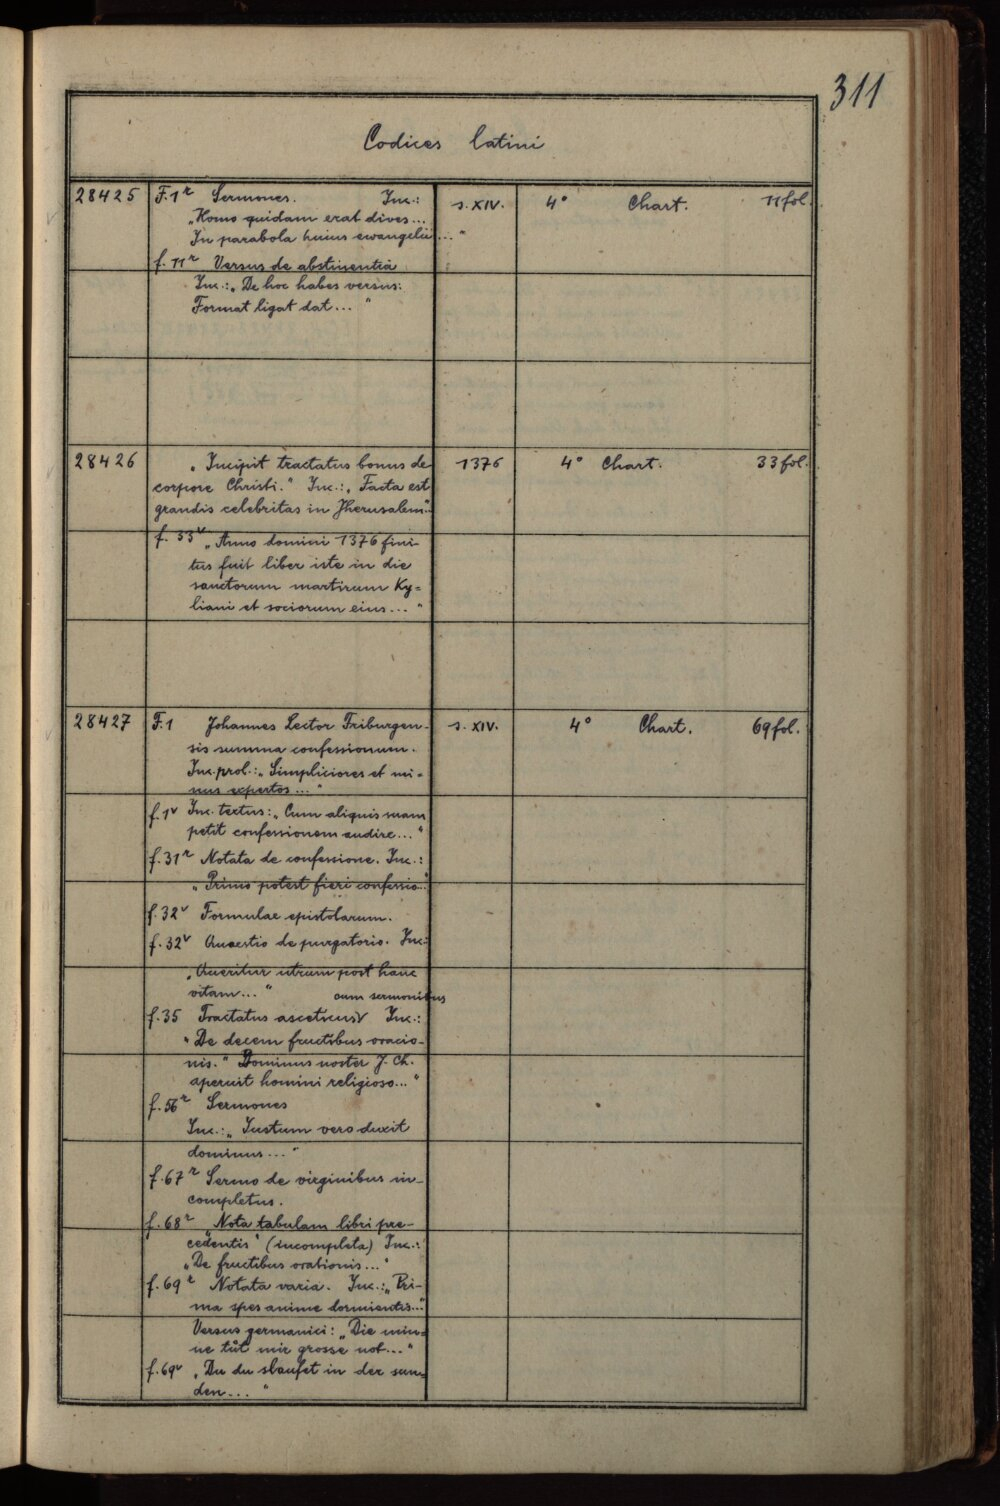 311
Codices latini
28425 F.1r Sermones. Inc.: s. XIV. 4° Chart. 11 fol.
„Homo quidam erat dives...
In parabola huius ewangelii..."
f. 11r Versus de abstinentia
Inc.: „De hoc habes versus:
Format ligat dat... "
28426 „Incipit tractatus bonus de 1376 4° Chart. 33 fol.
corpore Christi." Inc.: „Facta est
grandis celebritas in Jherusalem"..
f. 33v „Anno domini 1376 fini-
tus fuit liber iste in die
sanctorum martirum Ky=
liani et sociorum eius... "
28427 F.1 Johannes Lector Friburgen- s. XIV. 4° Chart. 69 fol.
sis summa confessionum.
Inc. prol.: „Simpliciores et mi=
nus expertos... "
f. 1v Inc. textus: „Cum aliquis suam
petit confessionem audire... "
f. 31r Notata de confessione. Inc.:
„Primo potest fieri confessio..."
f. 32v Formulae epistolarum.
f. 32v Quaestio de purgatorio. Inc.:
„Queritur utrum post hanc
vitam... "
cum sermonibus
f. 35 Tractatus asceticus Inc.:
"De decem fructibus oracio-
nis." Dominus noster J. Ch.
aperuit homini religioso..."
f. 56r Sermones
Inc.: „Iustum vero duxit
dominus... "
f. 67r Sermo de virginibus in-
completus.
f. 68r „Nota tabulam libri pre-
cedentis" (incompleta) Inc.:
„De fructibus orationis... "
f. 69r Notata varia. Inc.: „Pri-
ma spes anime dormientis..."
Versus germanici: „Die min=
ne tůt mir grosse not... "
f. 69v „Du du slaufet in der sun-
den... "